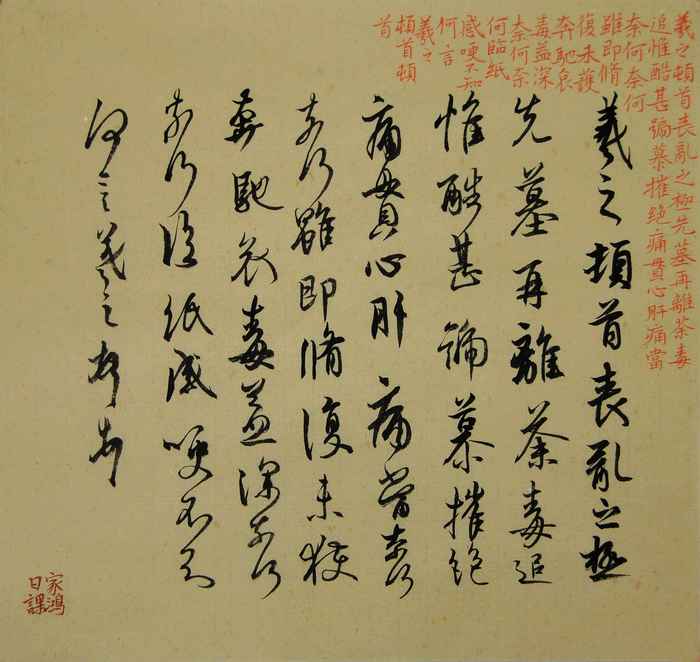 羲之頓首喪亂之極先墓再離荼毒
追惟酷甚號慕摧絕痛貫心肝痛當
奈何奈何
雖即脩
復未獲
奔馳哀
毒益深
奈何奈
何臨紙
感哽不知
何言
羲之
頓首頓
首
羲之頓首喪亂之極
先墓再離荼毒追
惟酷甚號慕摧絕
痛貫心肝痛當奈何
奈何雖即脩復未獲
奔馳哀毒益深奈何
奈何臨紙感哽不知
何言羲之頓首頓首
家鴻
日課